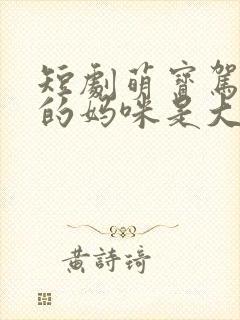 短劇萌寶駕
的媽咪是大
黃詩琦